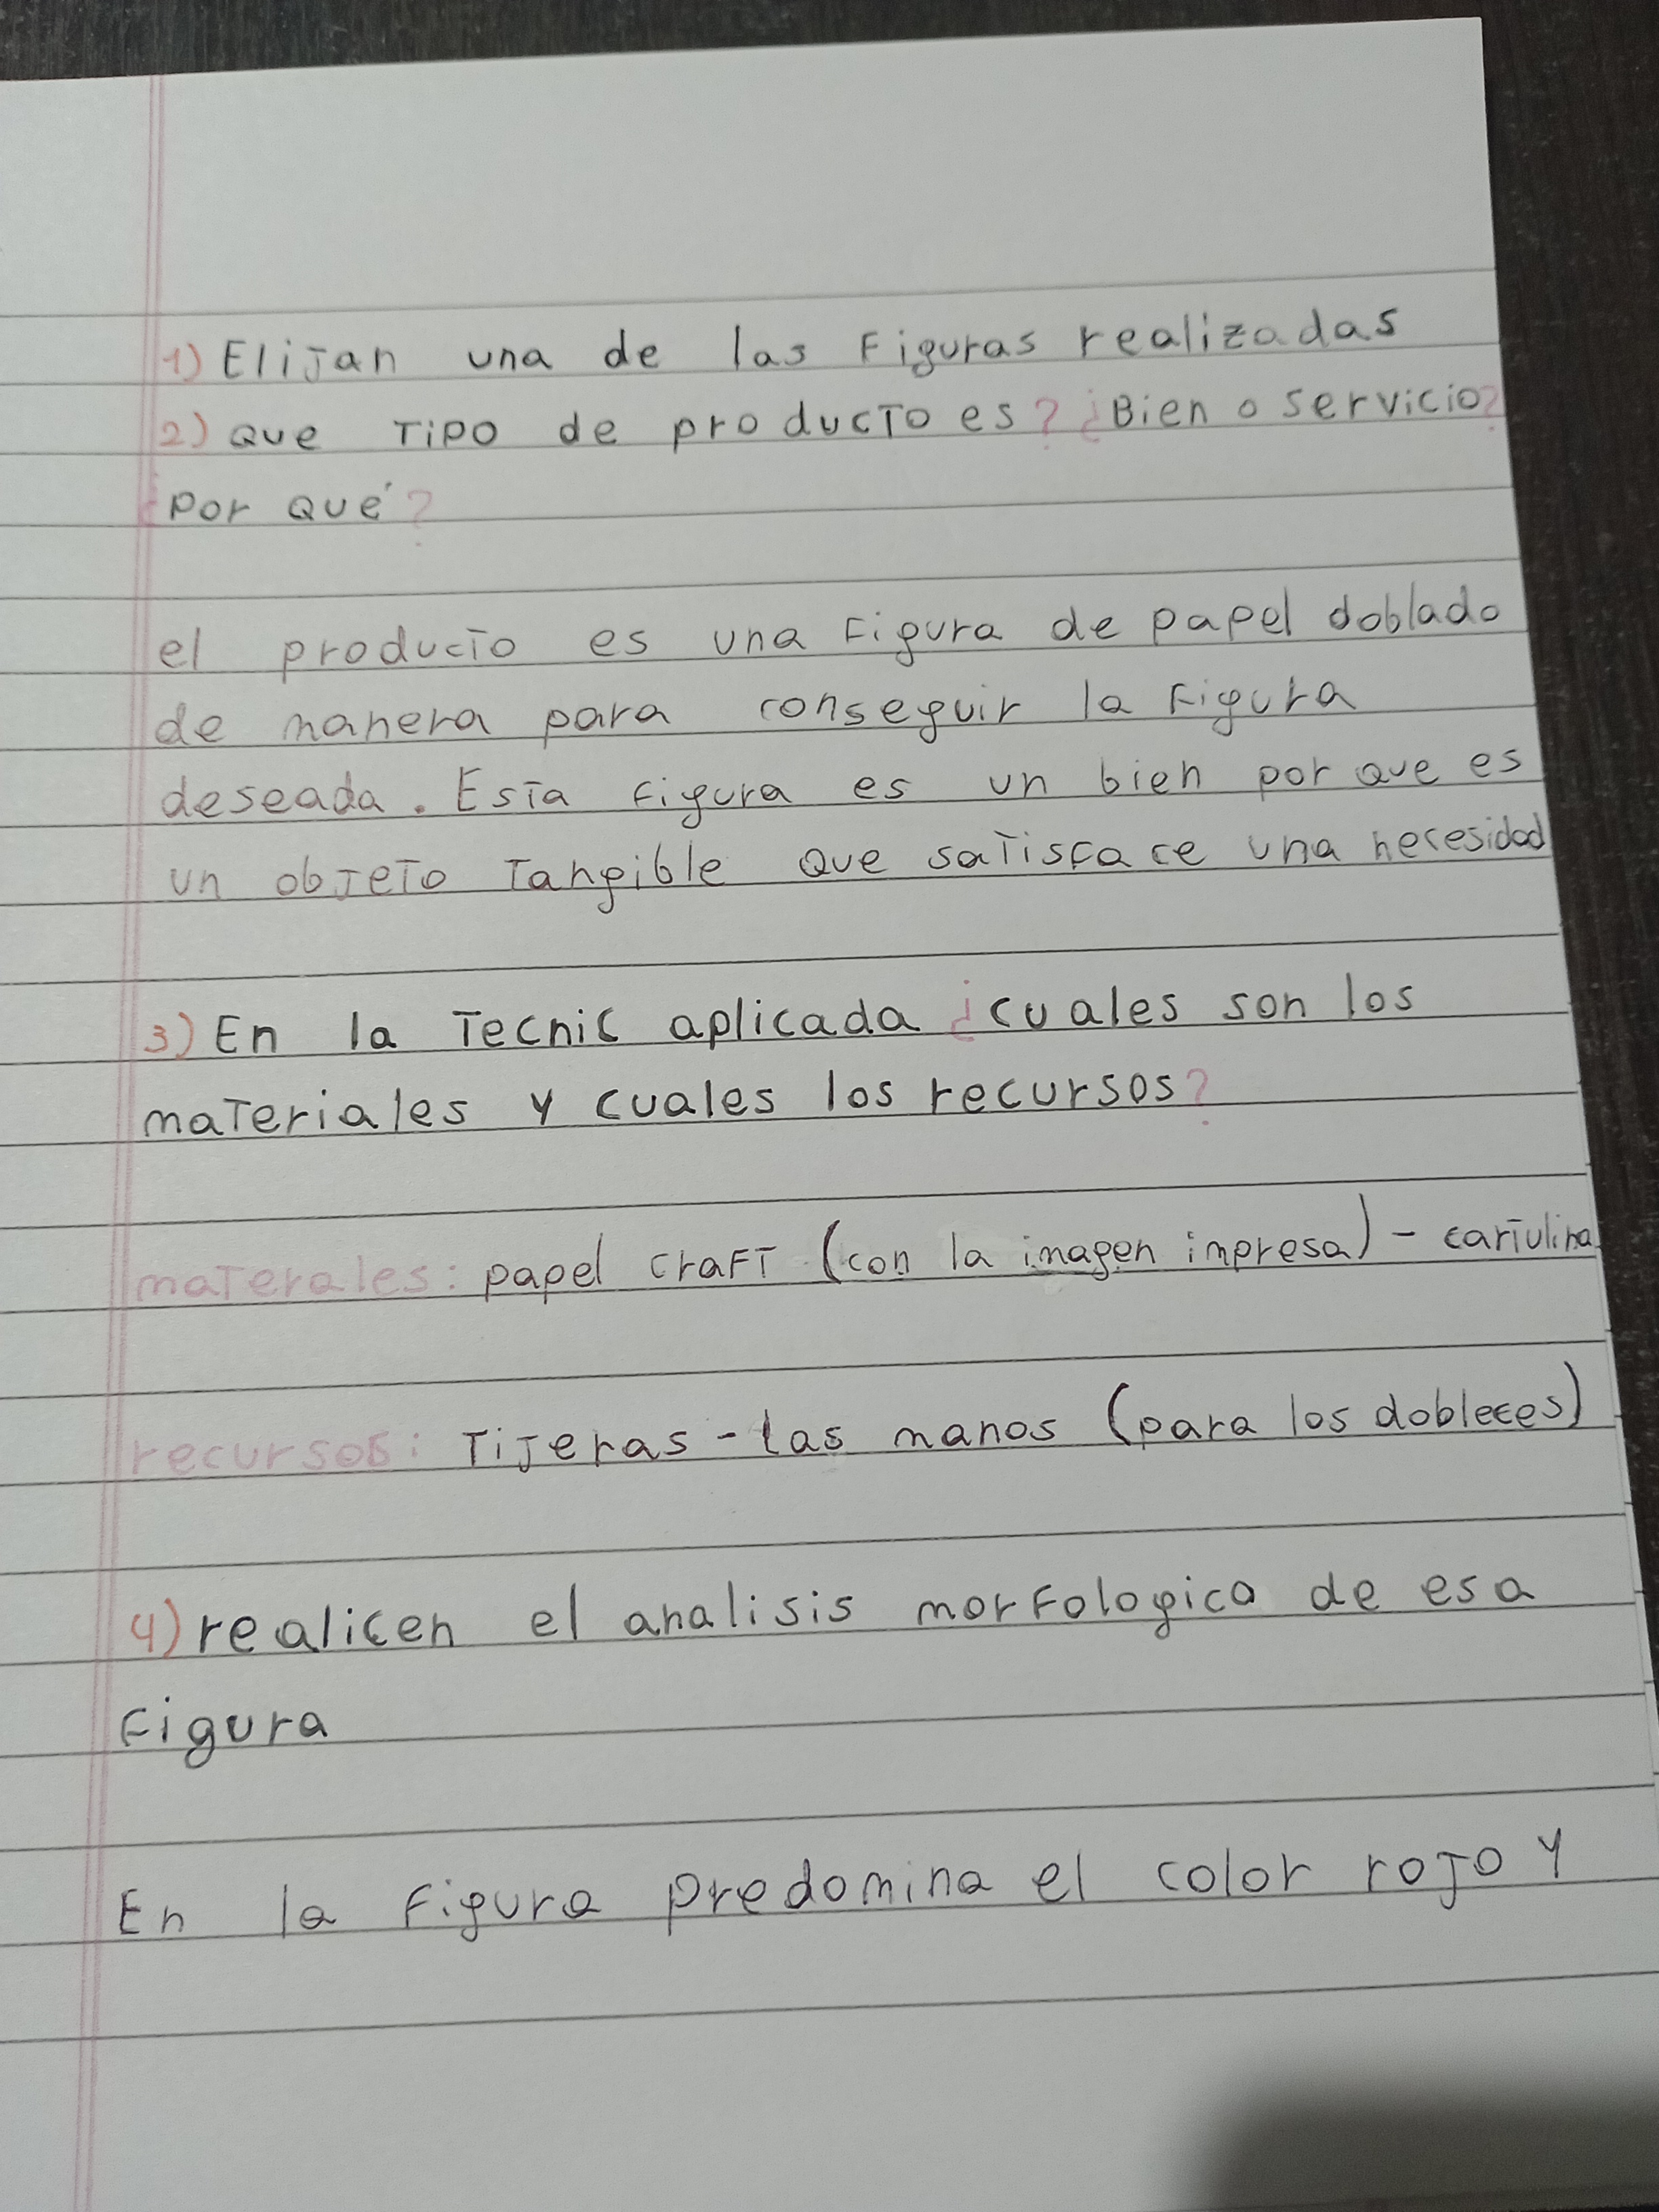 1) Elijan una de las Figuras realizadas
2) Que Tipo de producto es? ¿Bien o servicio?
¿Por Qué?
el producto es una Figura de papel doblado
de manera para conseguir la Figura
deseada. Esta Figura es un bien por que es
un objeto Tangible que satisface una necesidad
3) En la Tecnic aplicada ¿cuales son los
materiales y cuales los recursos?
materales: papel craft (con la imagen impresa) - cartulina
recursos: Tijeras - Las manos (para los dobleces)
4) realicen el analisis morfologica de esa
Figura
En la Figura predomina el color rojo y